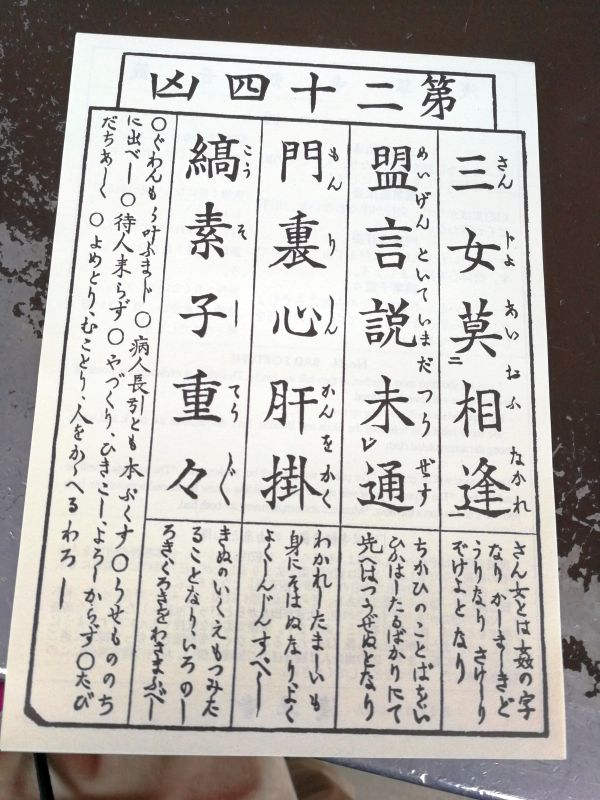 第二十四凶
三女莫相逢
さん トよ あい おふ なかれ
さん女とは姦の字
なり かしましきど
うりなり さけしり
ぞけよとなり
盟言説未通
めいげん といて いまだ つう ぜず
ちかひのことばをい
ひかはしたるばかりにて
先へはつうぜぬとなり
門裏心肝掛
もん り しん かんを かく
わかれしたましいも
身にそはぬなり、よく
よくしんじんすべし
縞素子重々
こう そ し てう
きぬのいくえもつみた
ることなり、いろのし
ろきくろきをわきまふべし
〇ぐわんもう叶ふまじ 〇病人長引とも本ぷくす 〇うせもののち
に出べし 〇待人来らず 〇やづくり、ひきこし、よろしからず 〇たび
だちあしく 〇よめとり、むことり、人をかゝへるわろし